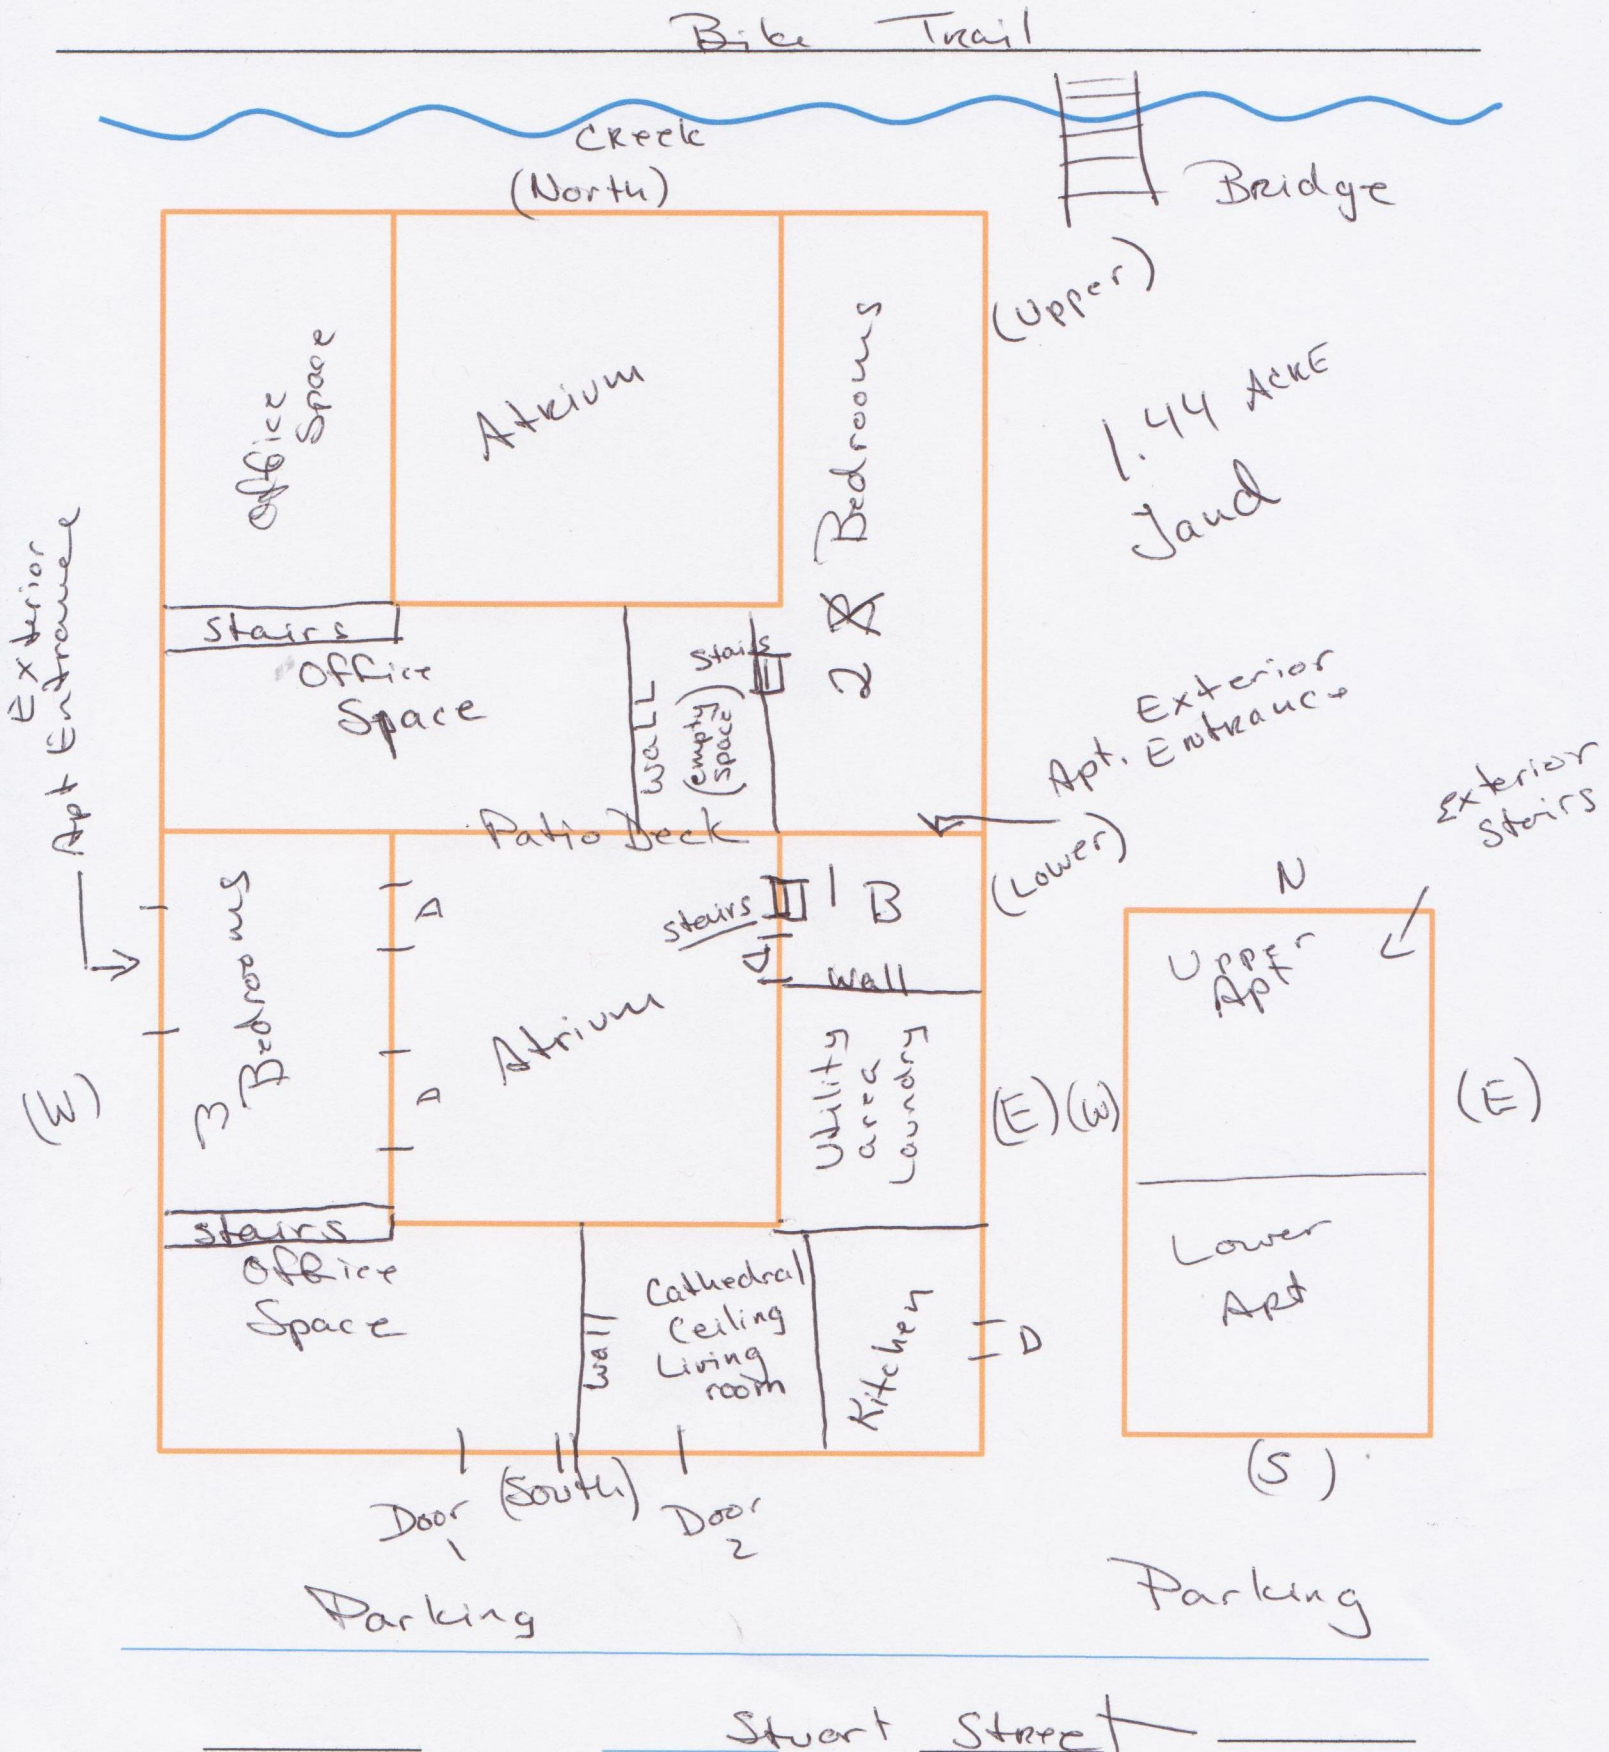 Bike Trail
Creek
(North)
Bridge
(Upper)
Office
Space
Atrium
2 Bedrooms
1.44 ACRE
Land
Exterior
Apt Entrance
Stairs
Office
Space
Wall
Stairs
(empty
space)
Apt. Exterior
Entrance
Exterior
Stairs
Patio Deck
(Lower)
3 Bedrooms
D
D
Atrium
Stairs
D
1 B
Wall
Utility
area
Laundry
(W)
(E)
(W)
N
Upper
Apt
(E)
Lower
Apt
(S)
Stairs
Office
Space
Wall
Cathedral
Ceiling
Living
room
Kitchen
D
Door
1
(South)
Door
2
Parking
Parking
Stuart Street